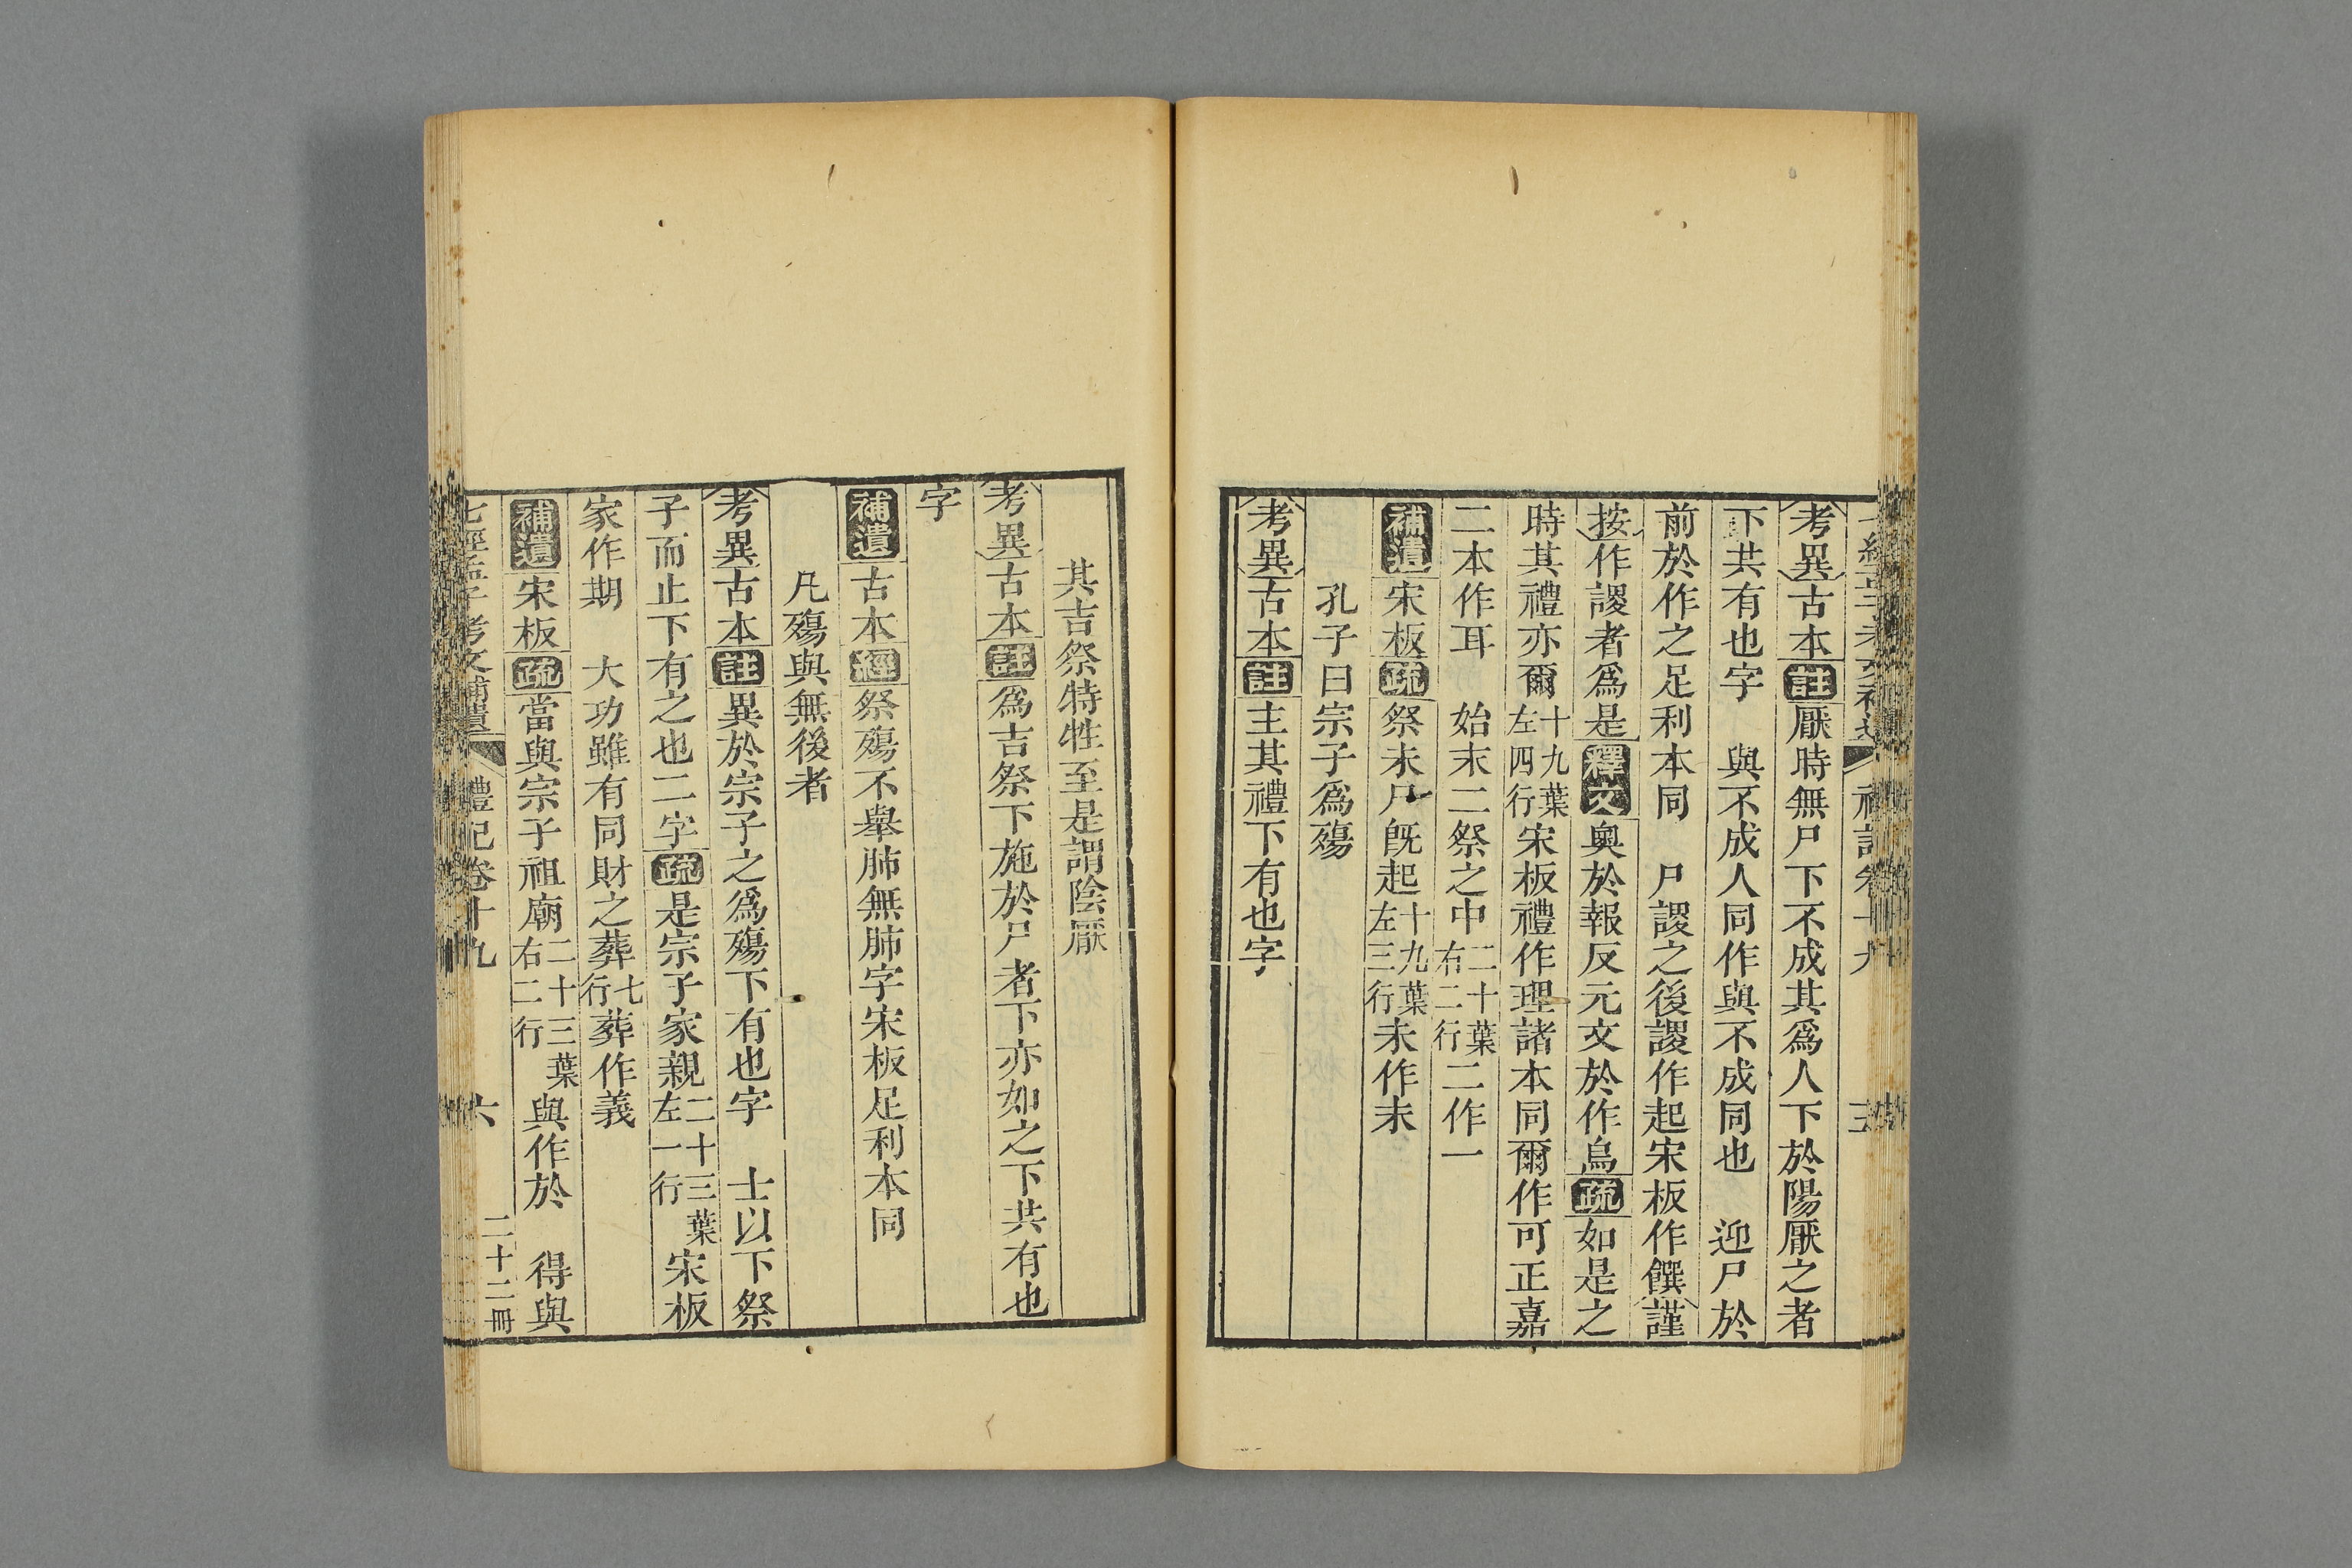 考異古本註厭時無尸下不成其爲人下於陽厭之者
下共有也字　與不成人同作與不成同也　迎尸於
前於作之足利本同　尸謖之後謖作起宋板作饌謹
按作謖者爲是釋文奧於報反元文於作烏疏如是之
時其禮亦爾十九葉左四行宋板禮作理諸本同爾作可正嘉
二本作耳　始末二祭之中二十葉右二行二作一
補遺宋板疏祭末尸旣起十九葉左三行末作未
孔子曰宗子爲殤
考異古本註主其禮下有也字
其吉祭特牲至是謂陰厭
考異古本註爲吉祭下施於尸者下亦如之下共有也
字
補遺古本經祭殤不舉肺無肺字宋板足利本同
凡殤與無後者
考異古本註異於宗子之爲殤下有也字　士以下祭
子而止下有之也二字疏是宗子家親二十三葉左一行宋板
家作期　大功雖有同財之葬七行葬作義
補遺宋板疏當與宗子祖廟二十三葉右二行與作於　得與
七經孟子考文補遺　禮記卷十九　六　二十二冊